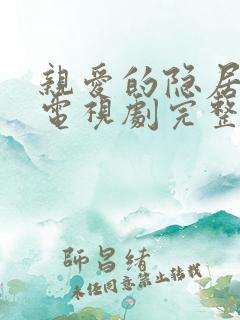 親愛的隐居
電視劇完整
師昌緒
未经同意禁止转载